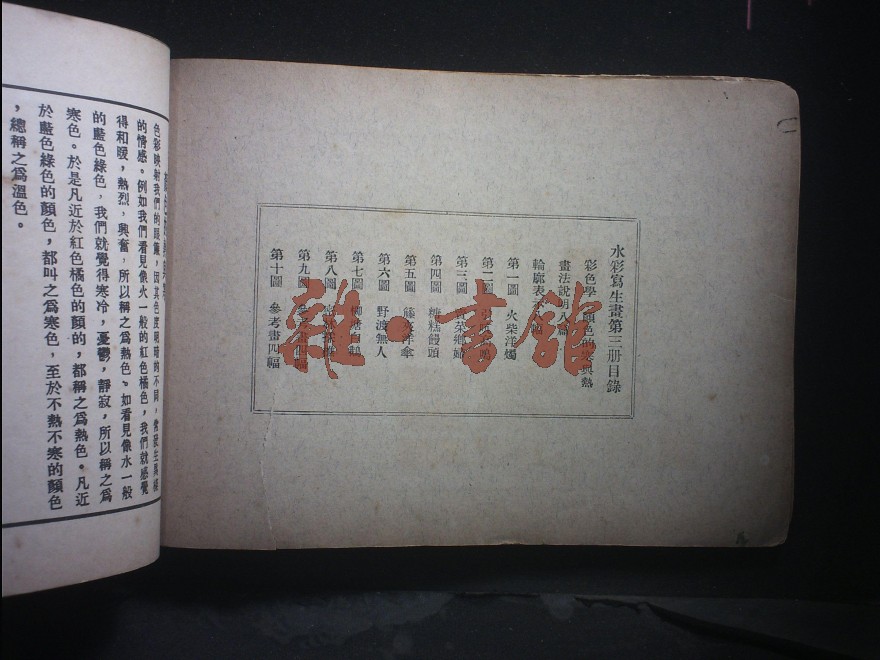 水彩寫生畫第三册目錄
彩色學 顏色的寒與熱
畫法說明八篇
輪廓表
第一圖 火柴洋燭
第二圖
第三圖 菜鄉婦
第四圖 糖糕饅頭
第五圖 藤 洋傘
第六圖 野渡無人
第七圖 柳塘白鵝
第八圖
第九圖 參考畫四幅
第十圖 參考畫四幅
雜書館
色彩映射我們的眼簾，因其色度明暗的不同，常發生異樣
的情感。例如我們看見像火一般的紅色橘色，我們就感覺
得和暖，熱烈，興奮，所以稱之為熱色。如看見像水一般
的藍色綠色，我們就覺得寒冷，憂鬱，靜寂，所以稱之爲
寒色。於是凡近於紅色橘色的顏的，都稱之爲熱色。凡近
於藍色綠色的顏色，都叫之爲寒色，至於不熱不寒的顏色
，總稱之爲溫色。